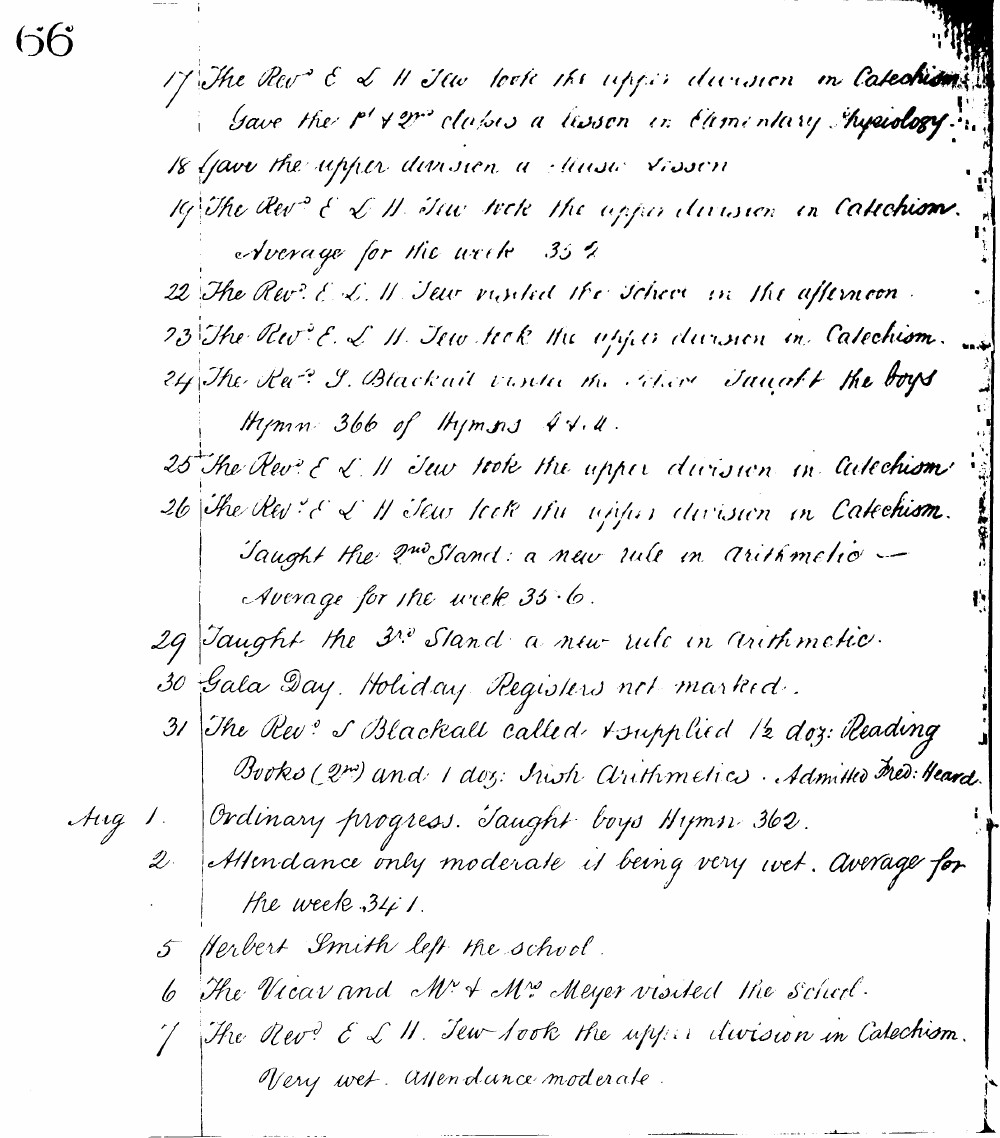 66
17 The Revd E L H Tew took the upper division in Catechism
Gave the 1st & 2nd classes a lesson in Elementary Physiology.
18 Gave the upper division a Music Lesson
19 The Revd E L H Tew took the upper division in Catechism.
Average for the week 35
22 The Revd. E. L. H. Tew visited the School in the afternoon.
23 The Revd. E. L H. Tew took the upper division in Catechism.
24 The Revd. S. Blackall visited the School Taught the boys
Hymn 366 of Hymns A & M.
25 The Revd. E L. H Tew took the upper division in Catechism
26 The Revd. E L H Tew took the upper division in Catechism.
Taught the 2nd Stand: a new rule in arithmetic —
Average for the week 35.6.
29 Taught the 3rd Stand a new rule in arithmetic.
30 Gala Day. Holiday Registers not marked.
31 The Revd. S Blackall called & supplied 1½ doz: Reading
Books (2nd) and 1 doz: Irish Arithmetics. Admitted Fred: Heard.
Aug 1. Ordinary progress. Taught boys Hymn 362.
2 Attendance only moderate it being very wet. Average for
the week 34.1.
5 Herbert Smith left the school.
6 The Vicar and Mr & Mrs Meyer visited the School.
7 The Revd E L H. Tew took the upper division in Catechism.
Very wet. Attendance moderate.